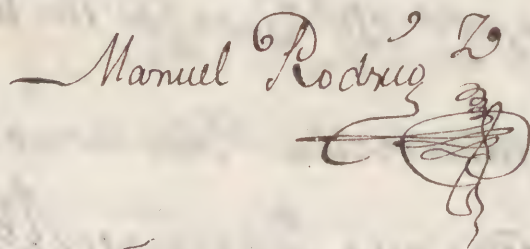 Manuel Rodrig^z